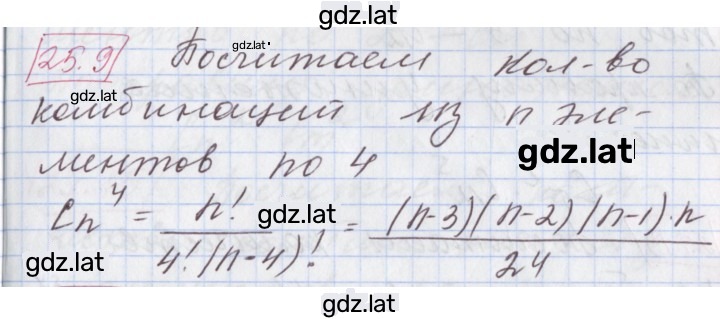 gdz.lat
25.9 Посчитаем кол-во
gdz.lat
комбинаций из n эле-
gdz.lat
ментов по 4
C_n^4 = n! / 4!(n-4)! = (n-3)(n-2)(n-1)·n / 24
gdz.lat
gdz.lat
gdz.lat